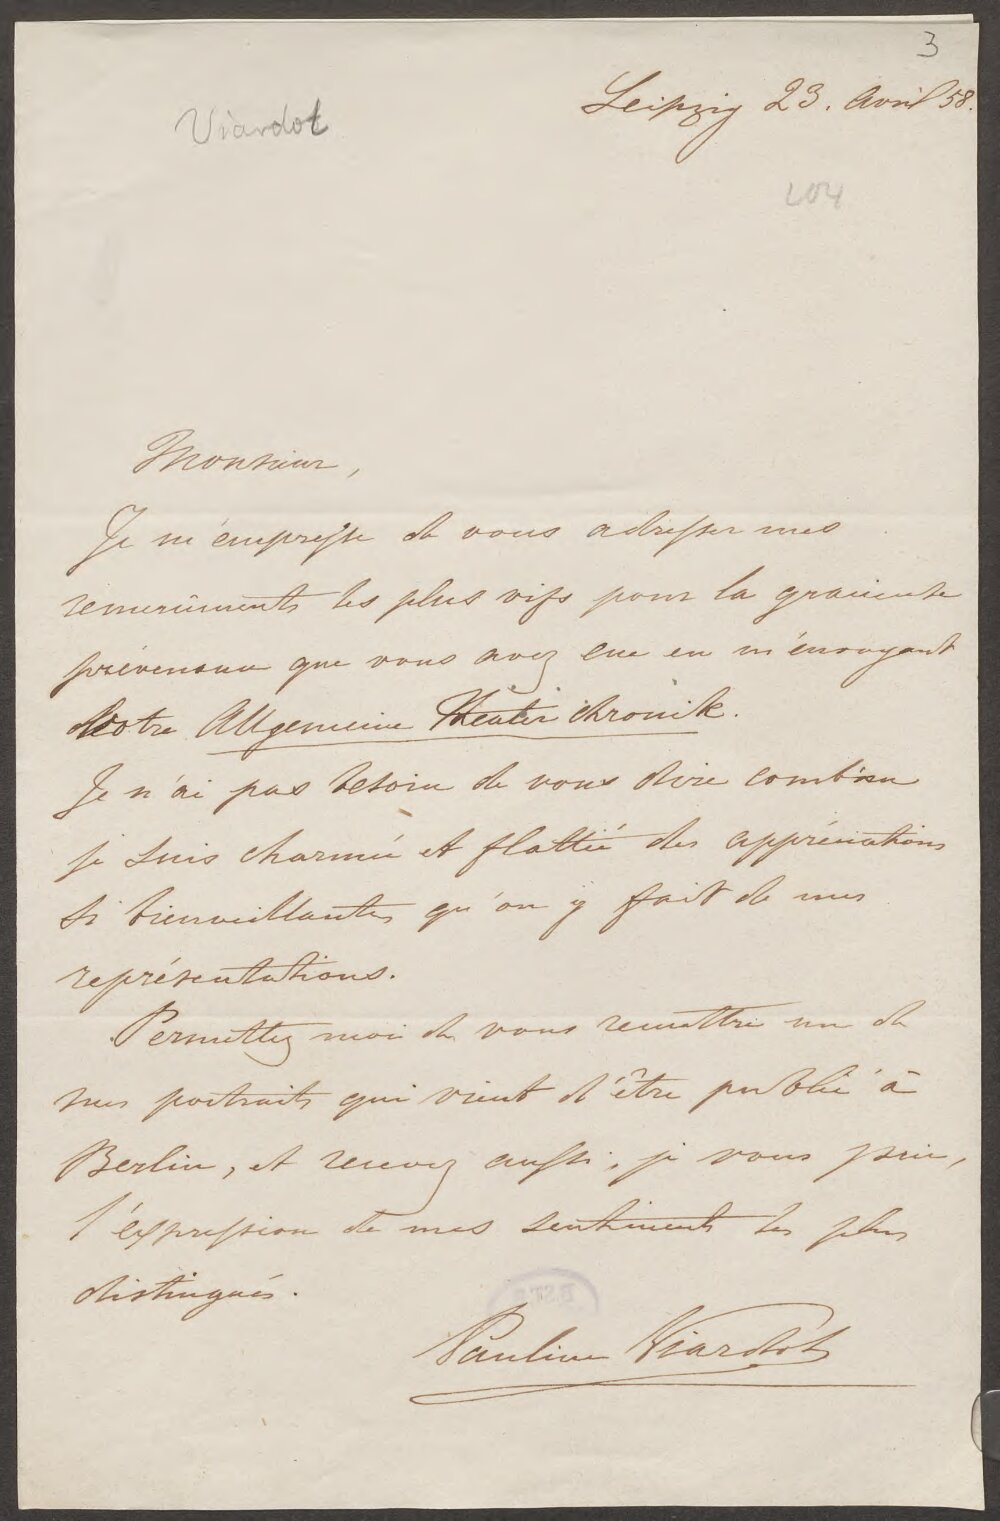 3
Leipzig 23. Avril 58.
Viardot
204
Monsieur,
Je m'empresse de vous adresser mes
remerciments les plus vifs pour la gracieuse
prévenance que vous avez eue en m'envoyant
Votre Allgemeine Theater chronik.
Je n'ai pas besoin de vous dire combien
je suis charmée et flattée des appréciations
si bienveillantes qu'on y fait de mes
représentations.
Permettez moi de vous remettre un de
mes portraits qui vient d'être publié à
Berlin, et recevez aussi, je vous prie,
l'expression de mes sentiments les plus
distingués.
Pauline Viardot